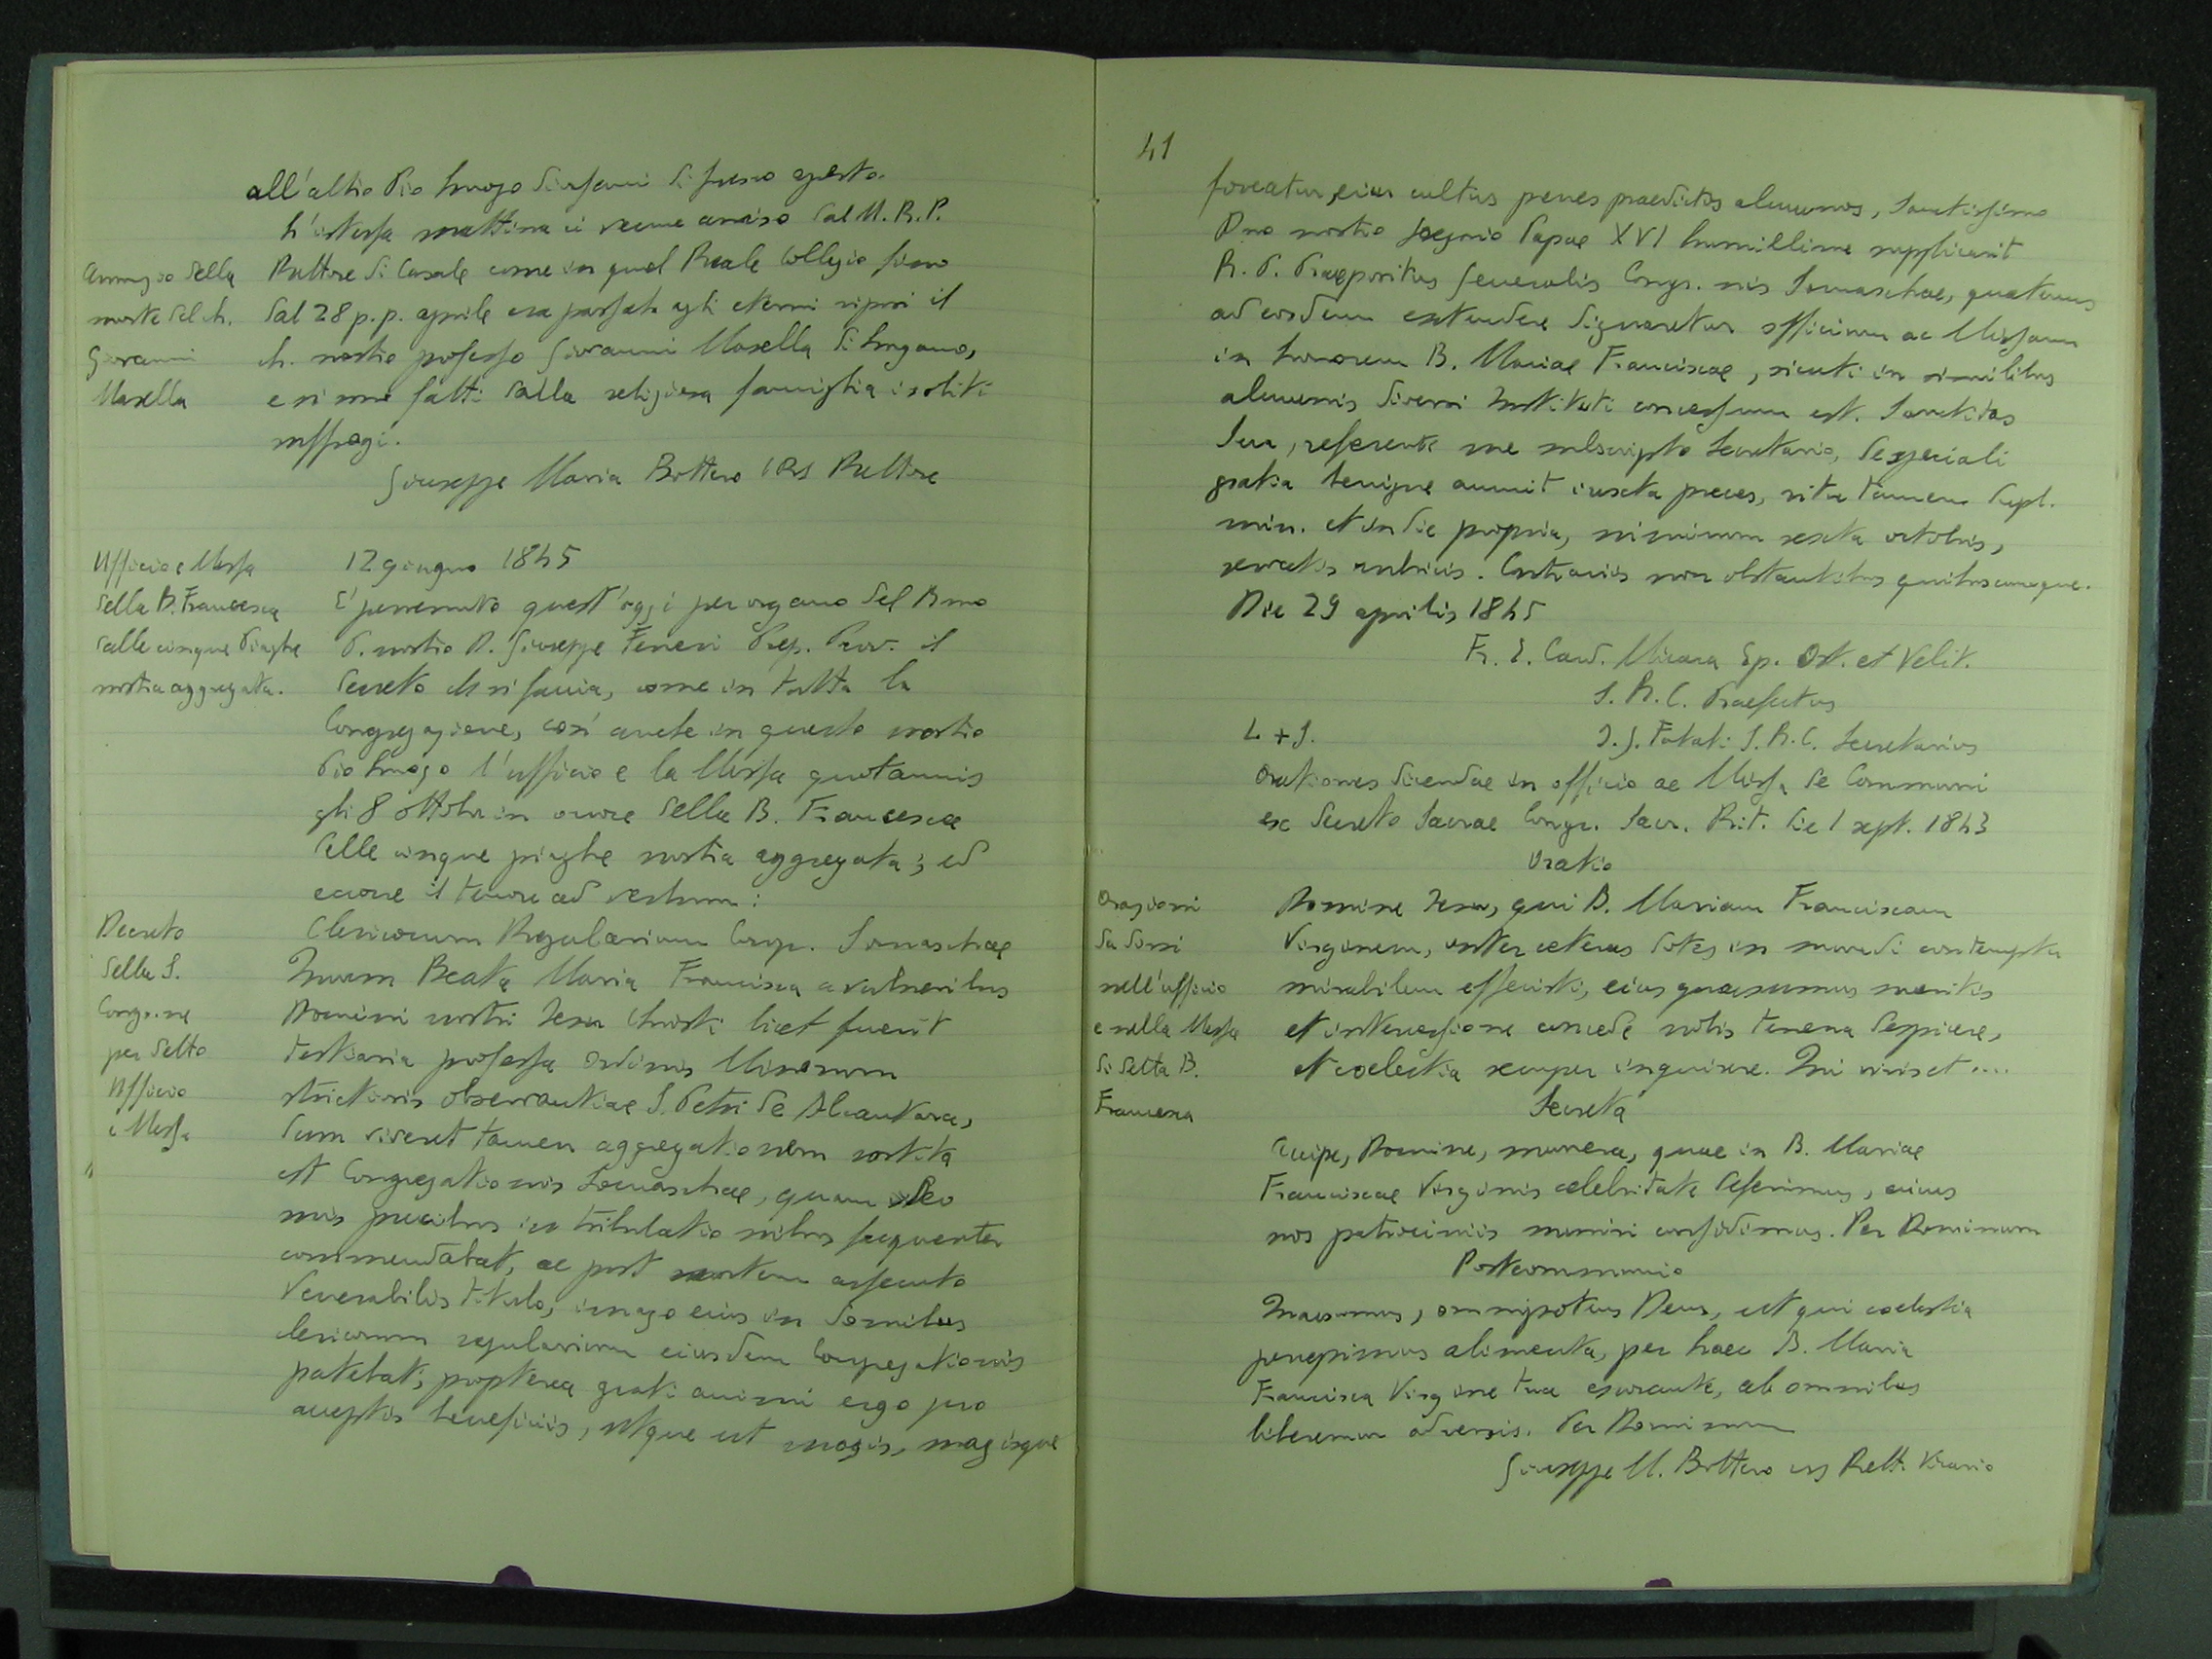 all'altro Pio Luogo d'infermi di fresco aperto.
L'istessa mattina ci venne avviso dal M. R. P.
Annuzio della
morte del ch.
Giovanni
Masella
Rettore di Casale come in quel Reale Collegio fino
dal 28 p.p. aprile era passato agli eterni riposi il
ch. nostro professo Giovanni Masella di Lugano,
e si sono fatti dalla religiosa famiglia i soliti
suffragi.
Giuseppe Maria Bottero CRS Rettore
Ufficio e Messa
della B. Francesca
dalle cinque Piaghe
nostra aggregata.
12 giugno 1845
E' pervenuto quest'oggi per organo del Rmo
P. nostro D. Giuseppe Ferreri Prep. Prov. il
decreto che si faccia, come in tutta la
Congregazione, così anche in questo nostro
Pio Luogo l'ufficio e la Messa quotannis
gli 8 ottobre in onore della B. Francesca
dalle cinque piaghe nostra aggregata; ed
eccone il tenore ad verbum:
Decreto
della S.
Congr.ne
per detto
Ufficio
e Messa
Clericorum Regularium Congr. Somaschae
Quum Beata Maria Francisca a vulneribus
Domini nostri Jesu Christi licet fuerit
tertiaria professa Ordinis Minorum
strictioris observantiae S. Petri de Alcantara,
dum viveret tamen aggregationem sortita
est Congregationis Somaschae, quam Deo
suis precibus in tribulationibus frequenter
commendabat, ac post mortem assecuto
Venerabilis titulo, imago eius in domibus
clericorum regularium eiusdem Congregationis
patebat; propterea grati animi ergo pro
acceptis beneficiis, utque ut magis, magisque
41
foveatur eius cultus penes praedictos alumnos, Sanctissimo
Dno nostro Gregorio Papae XVI humillime supplicavit
R. P. Praepositus Generalis Congr.nis Somaschae, quatenus
ad eosdem extendere dignaretur officium ac Missam
in honorem B. Mariae Franciscae, sicuti in similibus
alumnis diversi Instituti concessum est. Sanctitas
Sua, referente me subscripto Secretario, de speciali
gratia benigne annuit iuxta preces, ritu tamen dupl.
min. et in die propria, nimirum sexta octobris,
servatis rubricis. Contrariis non obstantibus quibuscumque.
Die 29 aprilis 1845
Fr. L. Card. Micara Ep. Ost. et Velit.
S. R. C. Praefectus
L + S.
J. G. Fatati S. R. C. Secretarius
Orationes dicendae in officio ac Missa de Communi
ex Decreto Sacrae Congr. Sacr. Rit. die 1 sept. 1843
Oratio
Orazioni
da dirsi
nell'ufficio
e nella Messa
di detta B.
Francesca
Domine Jesu, qui B. Mariam Franciscam
Virginem, inter ceteras dotes in mundi contemptu
mirabilem effecisti, eius quaesumus meritis
et intercessione concede nobis terrena despicere,
et coelestia semper inquirere. Qui vivis et ....
Secreta
Accipe, Domine, munera, quae in B. Mariae
Franciscae Virginis celebritate deferimus, cuius
nos patrociniis muniri confidimus. Per Dominum
Postcommunio
Quaesumus, omnipotens Deus, ut qui coelestia
percepimus alimenta, per haec B. Maria
Francisca Virgine tua exorante, ab omnibus
liberemur adversis. Per Dominum
Giuseppe M. Bottero crs Rett. Vicario